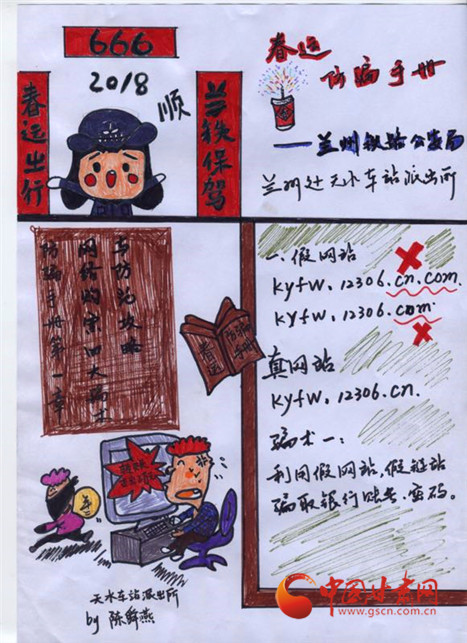 666
2018
顺
春运出行
兰铁保驾
春运
防骗手册
——兰州铁路公安局
兰州处天水车站派出所
防骗手册第一章
网络购票四大骗术
与防范攻略
春运
防骗
手册
一、假网站
kyfw.12306.cn.com.
kyfw.12306.com.
真网站
kyfw.12306.cn.
骗术一:
利用假网站,假链站
骗取银行账号、密码。
天水车站派出所
by 陈舜燕
中国甘肃网
www.gscn.com.cn